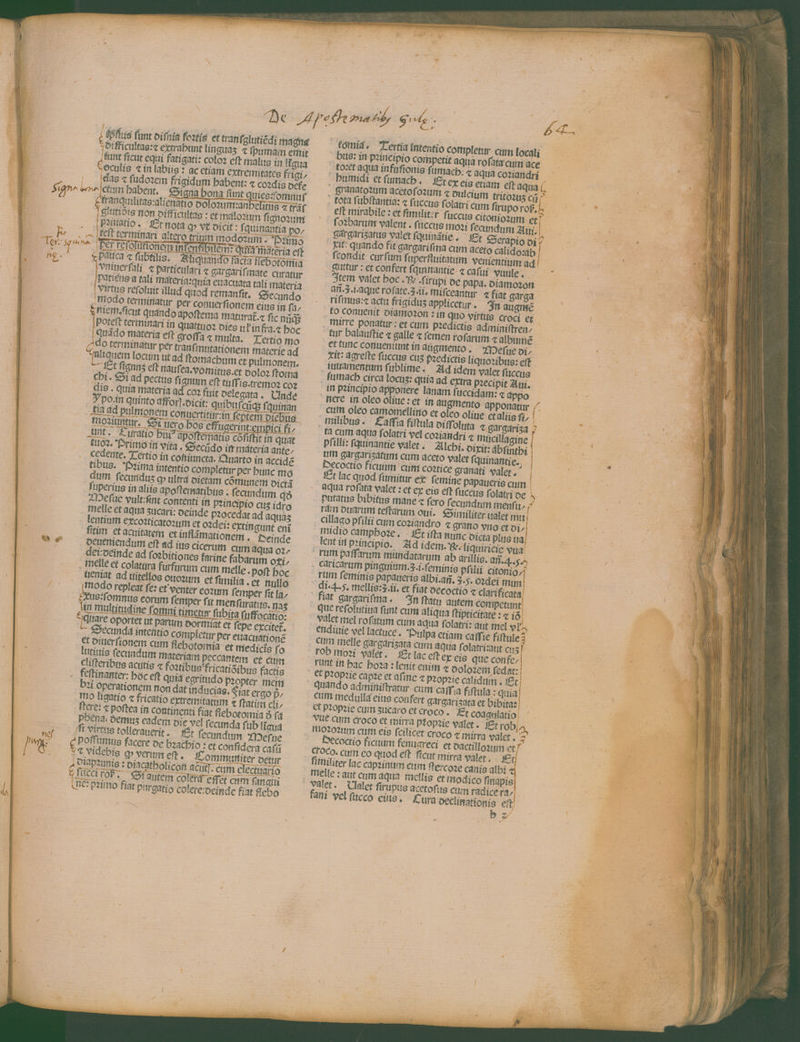 De Apostematibus Gule.
64
ipsius sunt disnia fortis et transglutiẽdi magna
difficultas: ⁊ extrahunt linguaȝ ⁊ spumam emit
tunt sicut equi fatigati: color est malus in ligua
⁊ oculis ⁊ in labiis: ac etiam extremitates frigi/
das ⁊ sudorem frigidum habent: ⁊ cordis defe
ctum habent. Signa bona sunt quies: somnus
⁊ tranquilitas: alienatio dolorum: anhelitus ⁊ trãs
glutiõis non difficultas: et malorum signorum
priuatio. Et nota ꝙ vt dicit: squinantia po/
test terminari altero trium modorum. Primo
per resolutionem insensibilem: quia materia est
pauca ⁊ subtilis. Aliquando facta flebotomia
vniuersali ⁊ particulari ⁊ gargarismate curatur
patiens a tali materia: quia euacuata tali materia
virtus resoluit illud quod remansit. Secundo
modo terminatur per conuersionem eius in sa/
niem, sicut quando apostema maturat̃: ⁊ sic nũꝙ
potest terminari in quattuor dies vt infra: ⁊ hoc
quãdo materia est grossa ⁊ multa. Tertio mo
do terminatur per transmutationem materie ad
aliquem locum ut ad stomachum et pulmonem.
Et signuȝ est nausea, vomitus, et dolor stoma
chi. Si ad pectus signum est tussis, tremor cor
dis. quia materia ad cor fuit delegata. Unde
ypo. in quinto affor. dicit: quibuscũqȝ squinan
tia ad pulmonem conuertitur: in septem diebus
moriuntur. Si uero hos effugerint: empici fi/
unt. Curatio huiꝰ apostematis cõsistit in quat
tuor. Primo in vita. Secũdo in materia ante/
cedente. Tertio in coniuncta. Quarto in accidẽ
tibus. Prima intentio completur per hunc mo
dum secunduȝ ꝙ ultra dietam cõmunem dictã
superius in aliis apostematibus. secundum qd̃
Mesue vult: sint contenti in principio cuȝ idro
melle et aqua zucari: deinde procedat ad aquaȝ
lentium excorticatorum et ordei: extingunt eni
sitim et acuitatem et inflãmationem. Deinde
deueniendum est ad ius cicerum cum aqua or/
dei: deinde ad sorbitiones farine fabarum oxi/
melle et colatura furfurum cum melle. post hoc
ueniat ad uitellos ouorum et similia. et nullo
modo repleat se: et venter eorum semper sit la/
xus: somnus eorum semper sit mensuratus. naȝ
in multitudine somni timetur subita suffocatio:
quare oportet ut parum dormiat et sepe excitet̃.
Secunda intentio completur per euacuationẽ
et diuersionem cum flebotomia et medicis so
lutiuis secundum materiam peccantem et cum
clisteribus acutis ⁊ fortibus fricatiõibus factis
festinanter: hoc est quia egritudo propter mem
bri operationem non dat inducias. Fiat ergo p̃/
mo ligatio ⁊ fricatio extremitatum ⁊ statim cli/
stere: ⁊ postea in continenti fiat flebotomia d̃ sa
phena: demuȝ eadem die vel secunda sub ligua
si virtus tollerauerit. Et secundum Mesue
possumus facere de brachio: et considera casũ
⁊ videbis ꝙ verum est. Communiter detur
diaprunis: diacatholicon acut̃. cum electuario
succi ros̃. Si autem colera esset cum sangui
ne: primo fiat purgatio colere: deinde fiat flebo
tomia. Tertia intentio completur cum locali
bus: in principio competit aqua rosata cum ace
to: et aqua infusionis sumach: ⁊ aqua coriandri
humidi et sumach. Et ex eis etiam est aqua
granatorum acetosorum ⁊ dulcium tritorum cũ
tota substantia: ⁊ succus solatri cum sirupo ros̃.
est mirabile: et similit̃ succus citoniorum et
sorbarum valent. succus mori secundum Aui.
gargarizatus valet squinãtie. Et Serapio di
xit: quando fit gargarisma cum aceto calido: ab
scondit cursum superfluitatum venientium ad
guttur: et confert squinantie ⁊ casui vuule.
Item valet hoc. ℞. sirupi de papa. diamoron
añ. ʒ.i. aque rosate. ʒ.ii. misceantur ⁊ fiat garga
rismus: ⁊ actu frigiduȝ applicetur. In augmẽ
to conuenit diamoron: in quo virtus croci et
mirre ponatur: et cum predictis administren/
tur balaustie ⁊ galle ⁊ semen rosarum ⁊ albumẽ
et tunc conueniunt in augmento. Mesue di/
xit: agreste succus cuȝ predictis liquoribus: est
iuuamentum sublime. Ad idem valet succus
sumach circa locuȝ: quia ad extra precipit Aui.
in principio apponere lanam succidam: ⁊ appo
nere in oleo oliue: et in augmento apponatur
cum oleo camomellino et oleo oliue et aliis si/
milibus. Cassia fistula dissoluta ⁊ gargariza
ta cum aqua solatri vel coriandri ⁊ mucillagine
psilli: squinantie valet. Alchi. dixit: absinthi
um gargarizatum cum aceto valet squinantie.
Decoctio ficuum cum cortice granati valet.
Et lac quod sumitur ex semine papaueris cum
aqua rosata valet: et ex eis est succus solatri de
putatus bibitus mane ⁊ sero secundum mensu/
ram duarum testarum oui. Similiter ualet mu
cillago psilii cum coriandro ⁊ grano vno et di/
midio camphore. Et ista nunc dicta plus va
lent in principio. Ad idem. ℞. liquiricie vua
rum passarum mundatarum ab arillis. añ. 4.5.
caricarum pinguium. ʒ.i. seminis psilii citonio/
rum seminis papaueris albi. añ. ʒ.5. ordei mun
di. 4.5. mellis: ʒ.ii. et fiat decoctio ⁊ clarificata
fiat gargarisma. In statu autem competunt
que resolutiua sunt cum aliqua stipticitate: ⁊ iõ
valet mel rosatum cum aqua solatri: aut mel vl̃
endiuie vel lactuce. Pulpa etiam cassie fistule
cum melle gargarizata cum aqua solatri: aut cuȝ
rob mori valet. Et lac est ex eis que confe/
runt in hac hora: lenit enim ⁊ dolorem sedat:
et proprie capre et asine ⁊ proprie calidum. Et
quando administratur cum cassia fistula: quia
cum medulla eius confert gargarizata et bibita:
et proprie cum zucaro et croco. Et coagulatio
vue cum croco et mirra proprie valet. Et rob
mororum cum eis scilicet croco ⁊ mirra valet.
Decoctio ficuum fenugreci et dactillorum et
croco. cum eo quod est sicut mirra valet. Et
similiter lac caprinum cum stercore canis albi ⁊
melle: aut cum aqua mellis et modico sinapis
valet. Ualet sirupus acetosus cum radice ra/
fani vel succo eius. Cura declinationis est
h 2